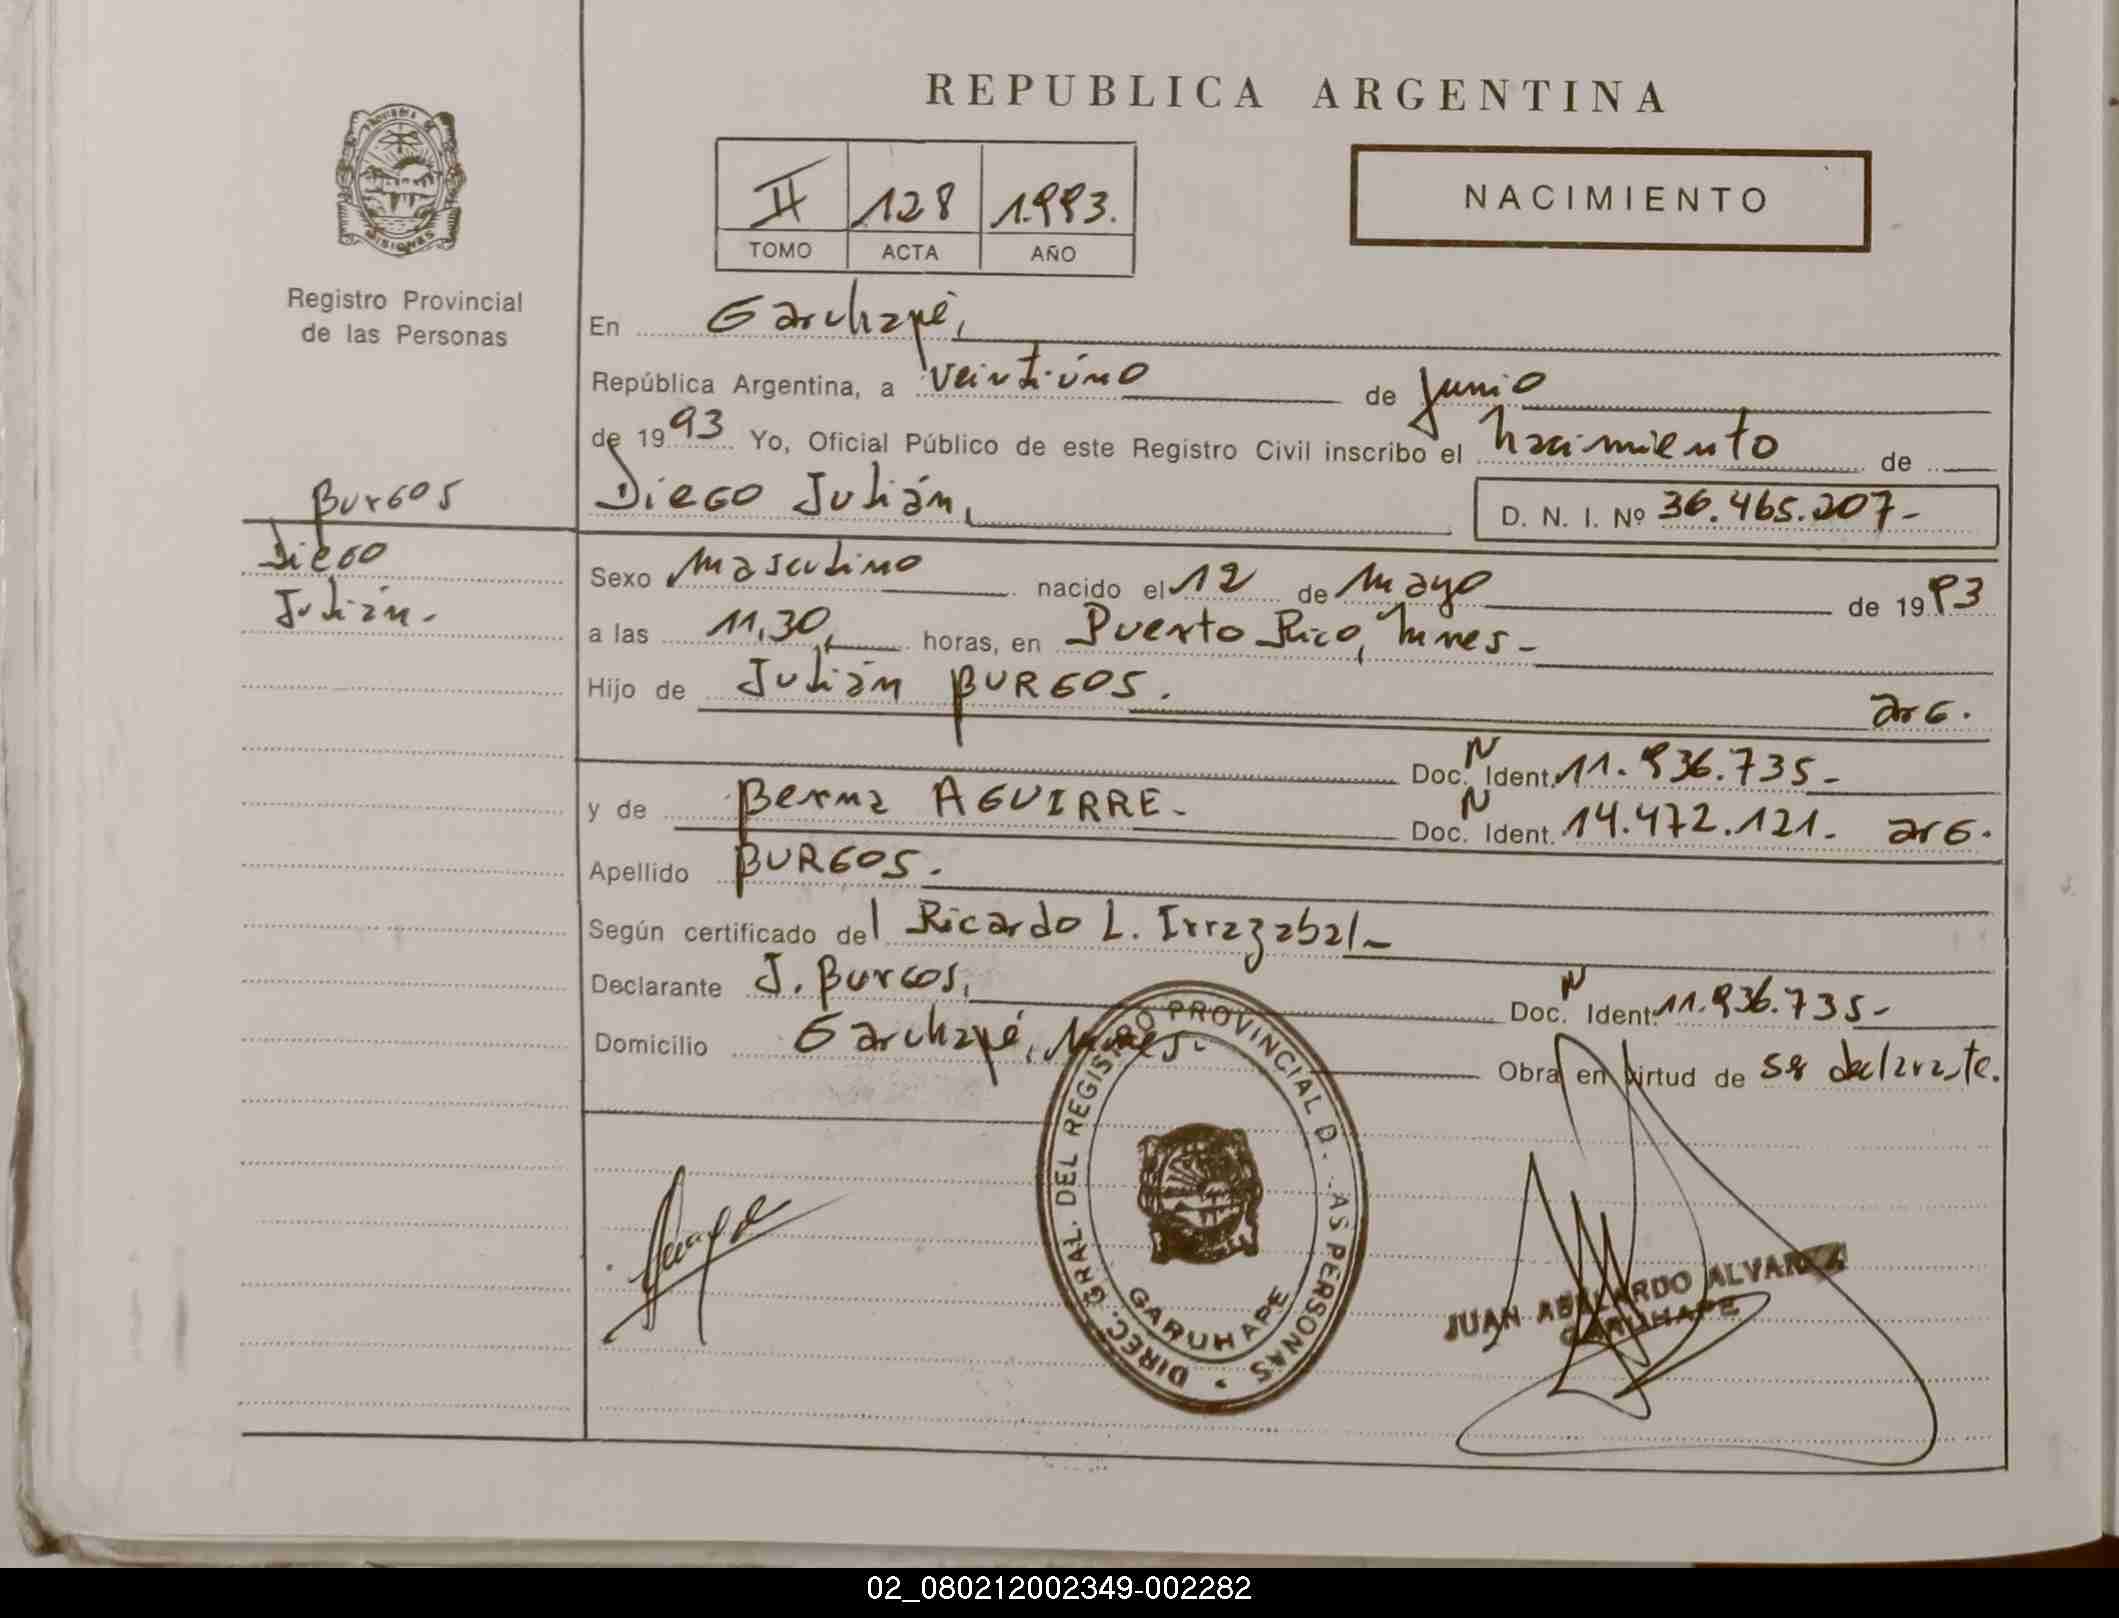 REPUBLICA ARGENTINA
II 128 1.993.
TOMO ACTA AÑO
NACIMIENTO
Registro Provincial
de las Personas
En Garuhapé,
República Argentina, a veintiuno de junio
de 1993 Yo, Oficial Público de este Registro Civil inscribo el nacimiento de
Diego Julián, D. N. I. Nº 36.465.207-
Burgos
Diego
Julián.
Sexo masculino nacido el 12 de mayo de 1993
a las 11,30, horas, en Puerto Rico, Mnes-
Hijo de Julián BURGOS. arg.
Doc. N Ident. 11.936.735-
y de Berna AGUIRRE- Doc. N Ident. 14.472.121. arg.
Apellido BURGOS.
Según certificado del Ricardo L. Irrazabal-
Declarante J. Burgos, Doc. N Ident. 11.936.735-
Domicilio Garuhapé, Mnes. Obra en virtud de ser declarante.
DIREC. GRAL. DEL REGISTRO PROVINCIAL D. AS PERSONAS
GARUHAPE
JUAN ABELARDO ALVAREZ
GARUHAPE
02_080212002349-002282